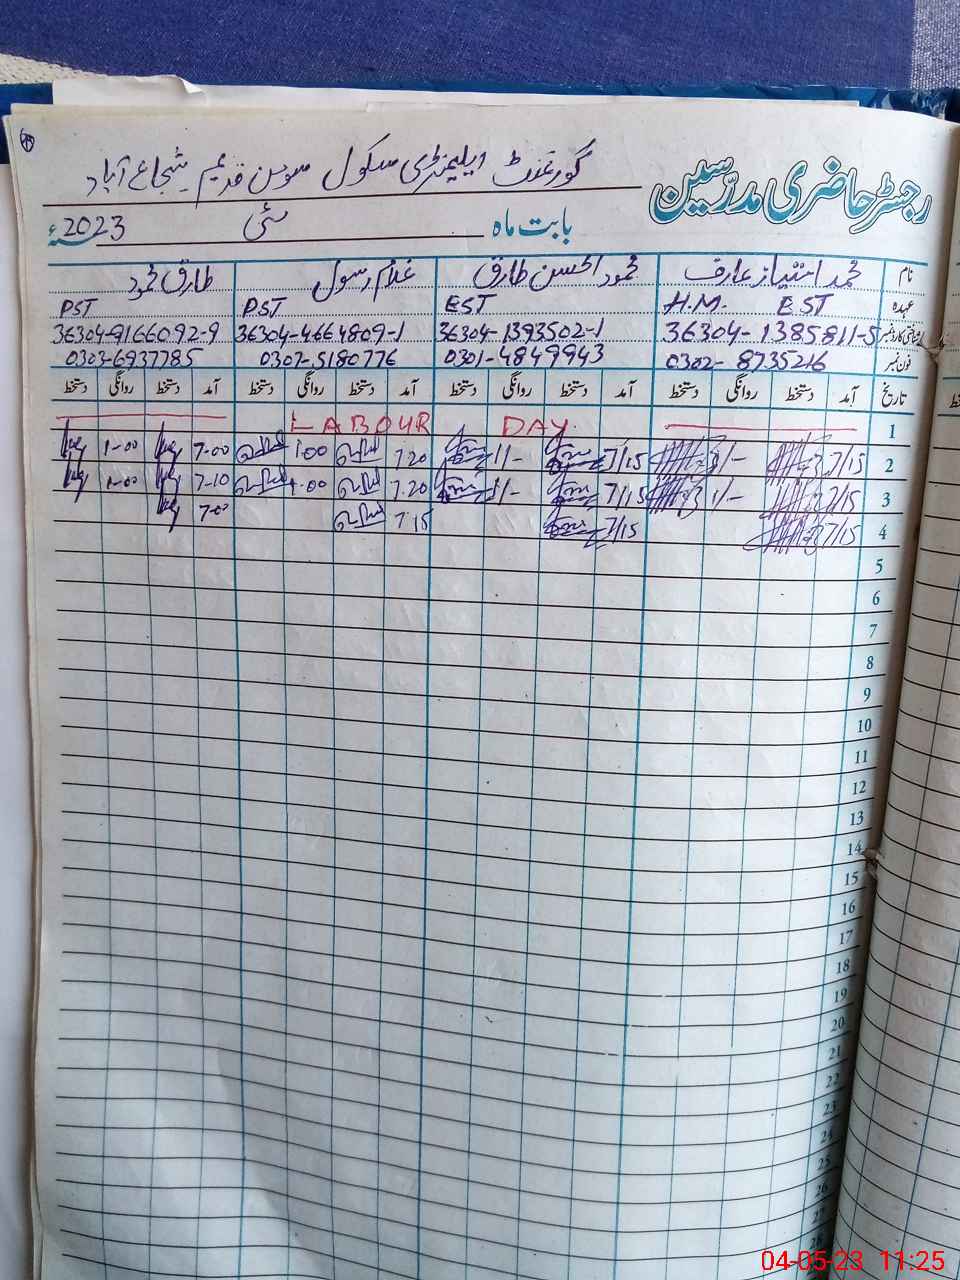 رجسٹر حاضری مدرسین
گورنمنٹ ایلیمنٹری سکول مومن قدیم شجاع آباد
بابت ماہ مئی 2023ء
نام محمد امتیاز عارف محمود الحسن طارق غلام رسول طارق محمود
عہدہ H.M. EST EST PST PST
شناختی کارڈ نمبر 36304-1385811-5 36304-1393502-1 36304-4664809-1 36304-9166092-9
فون نمبر 0302-8735216 0301-4849943 0307-5180776 0303-6937785
تاریخ آمد دستخط روانگی دستخط آمد دستخط روانگی دستخط آمد دستخط روانگی دستخط آمد دستخط روانگی دستخط
1 LABOUR DAY
2 7/15 1/- 7/15 1/- 7.20 1.00 7.00 1-00
3 7/15 1/- 7/15 1/- 7.20 1.00 7-10 1-00
4 7/15 7/15 7.15 7.00
5
6
7
8
9
10
11
12
13
14
15
16
17
18
19
20
21
22
23
24
25
26
27
28
04-05-23 11:25